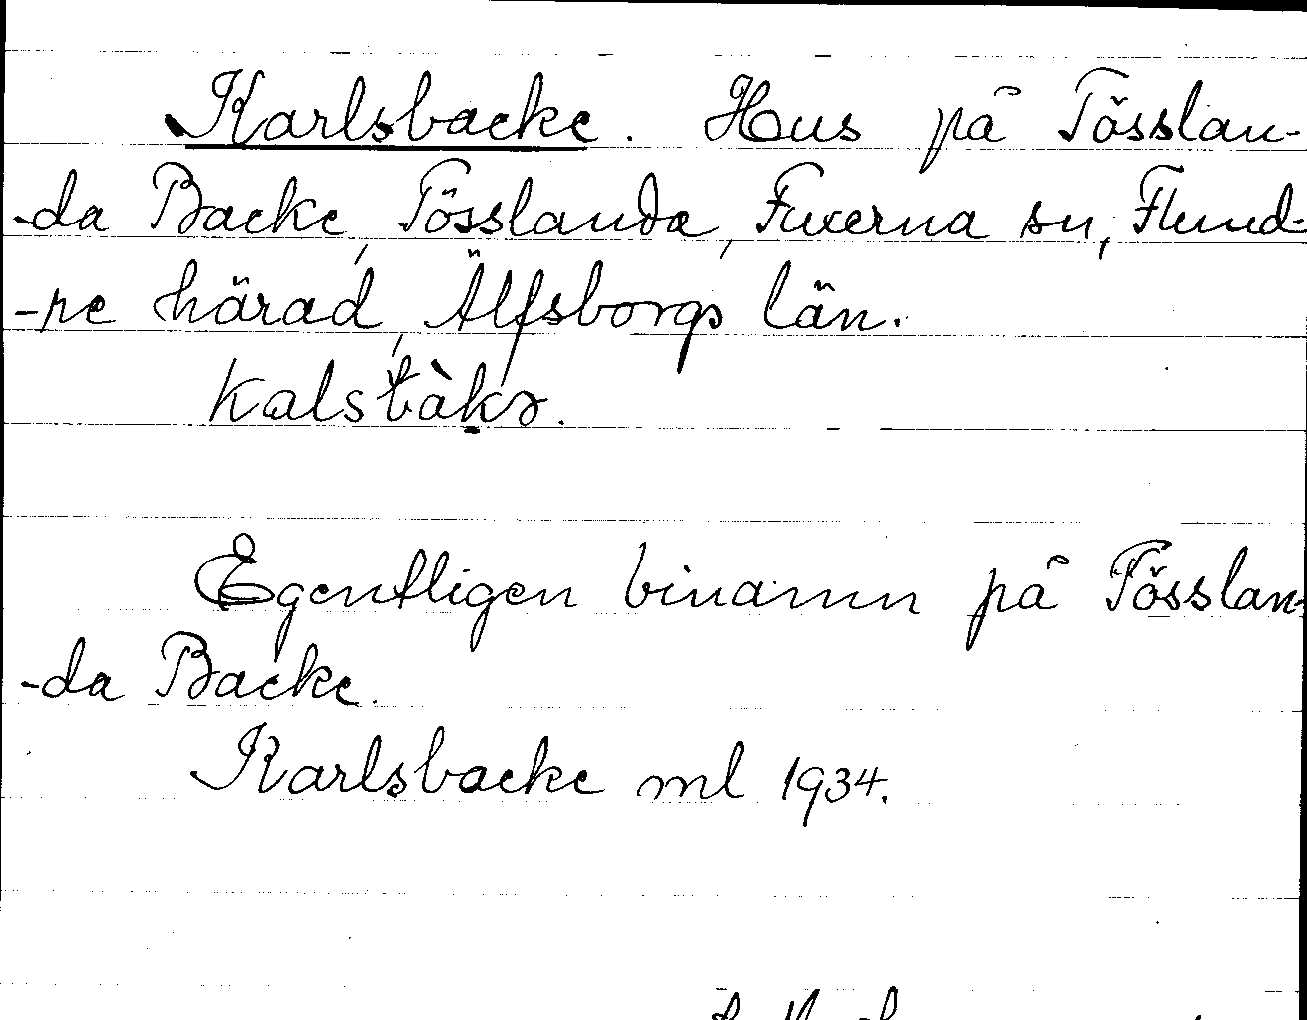 Karlsbacke. Hus på Tösslan-
-da Backe, Tösslanda, Fuxerna sn, Flund-
-re härad, Älfsborgs län.
kalsbàkə.
Egentligen binamn på Tösslan-
-da Backe.
Karlsbacke ml 1934.